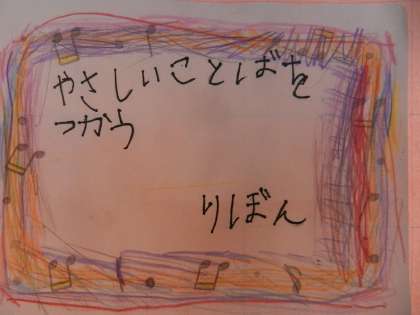 やさしいことばを
つかう
りぼん